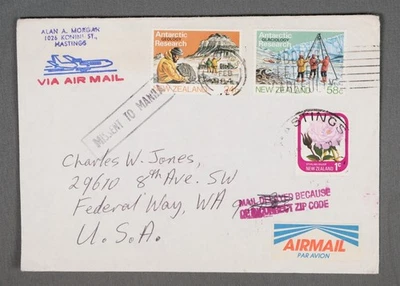 ALAN A. MORGAN
1026 KONINI ST.,
HASTINGS
VIA AIR MAIL
Antarctic
Research
GEOLOGY
NEW ZEALAND
Antarctic
Research
GLACIOLOGY
NEW ZEALAND 58c
FEB
MISSENT TO MANILA
HASTINGS
NEW ZEALAND 1c
Charles W. Jones,
29610 8th Ave. SW
Federal Way, WA
U.S.A.
MAIL DELAYED BECAUSE
OF INCORRECT ZIP CODE
AIRMAIL
PAR AVION